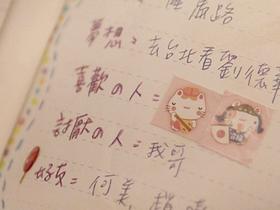 座風路
夢想：去台北看劉德華
喜歡の人＝
討厭の人＝我哥
好友＝何美